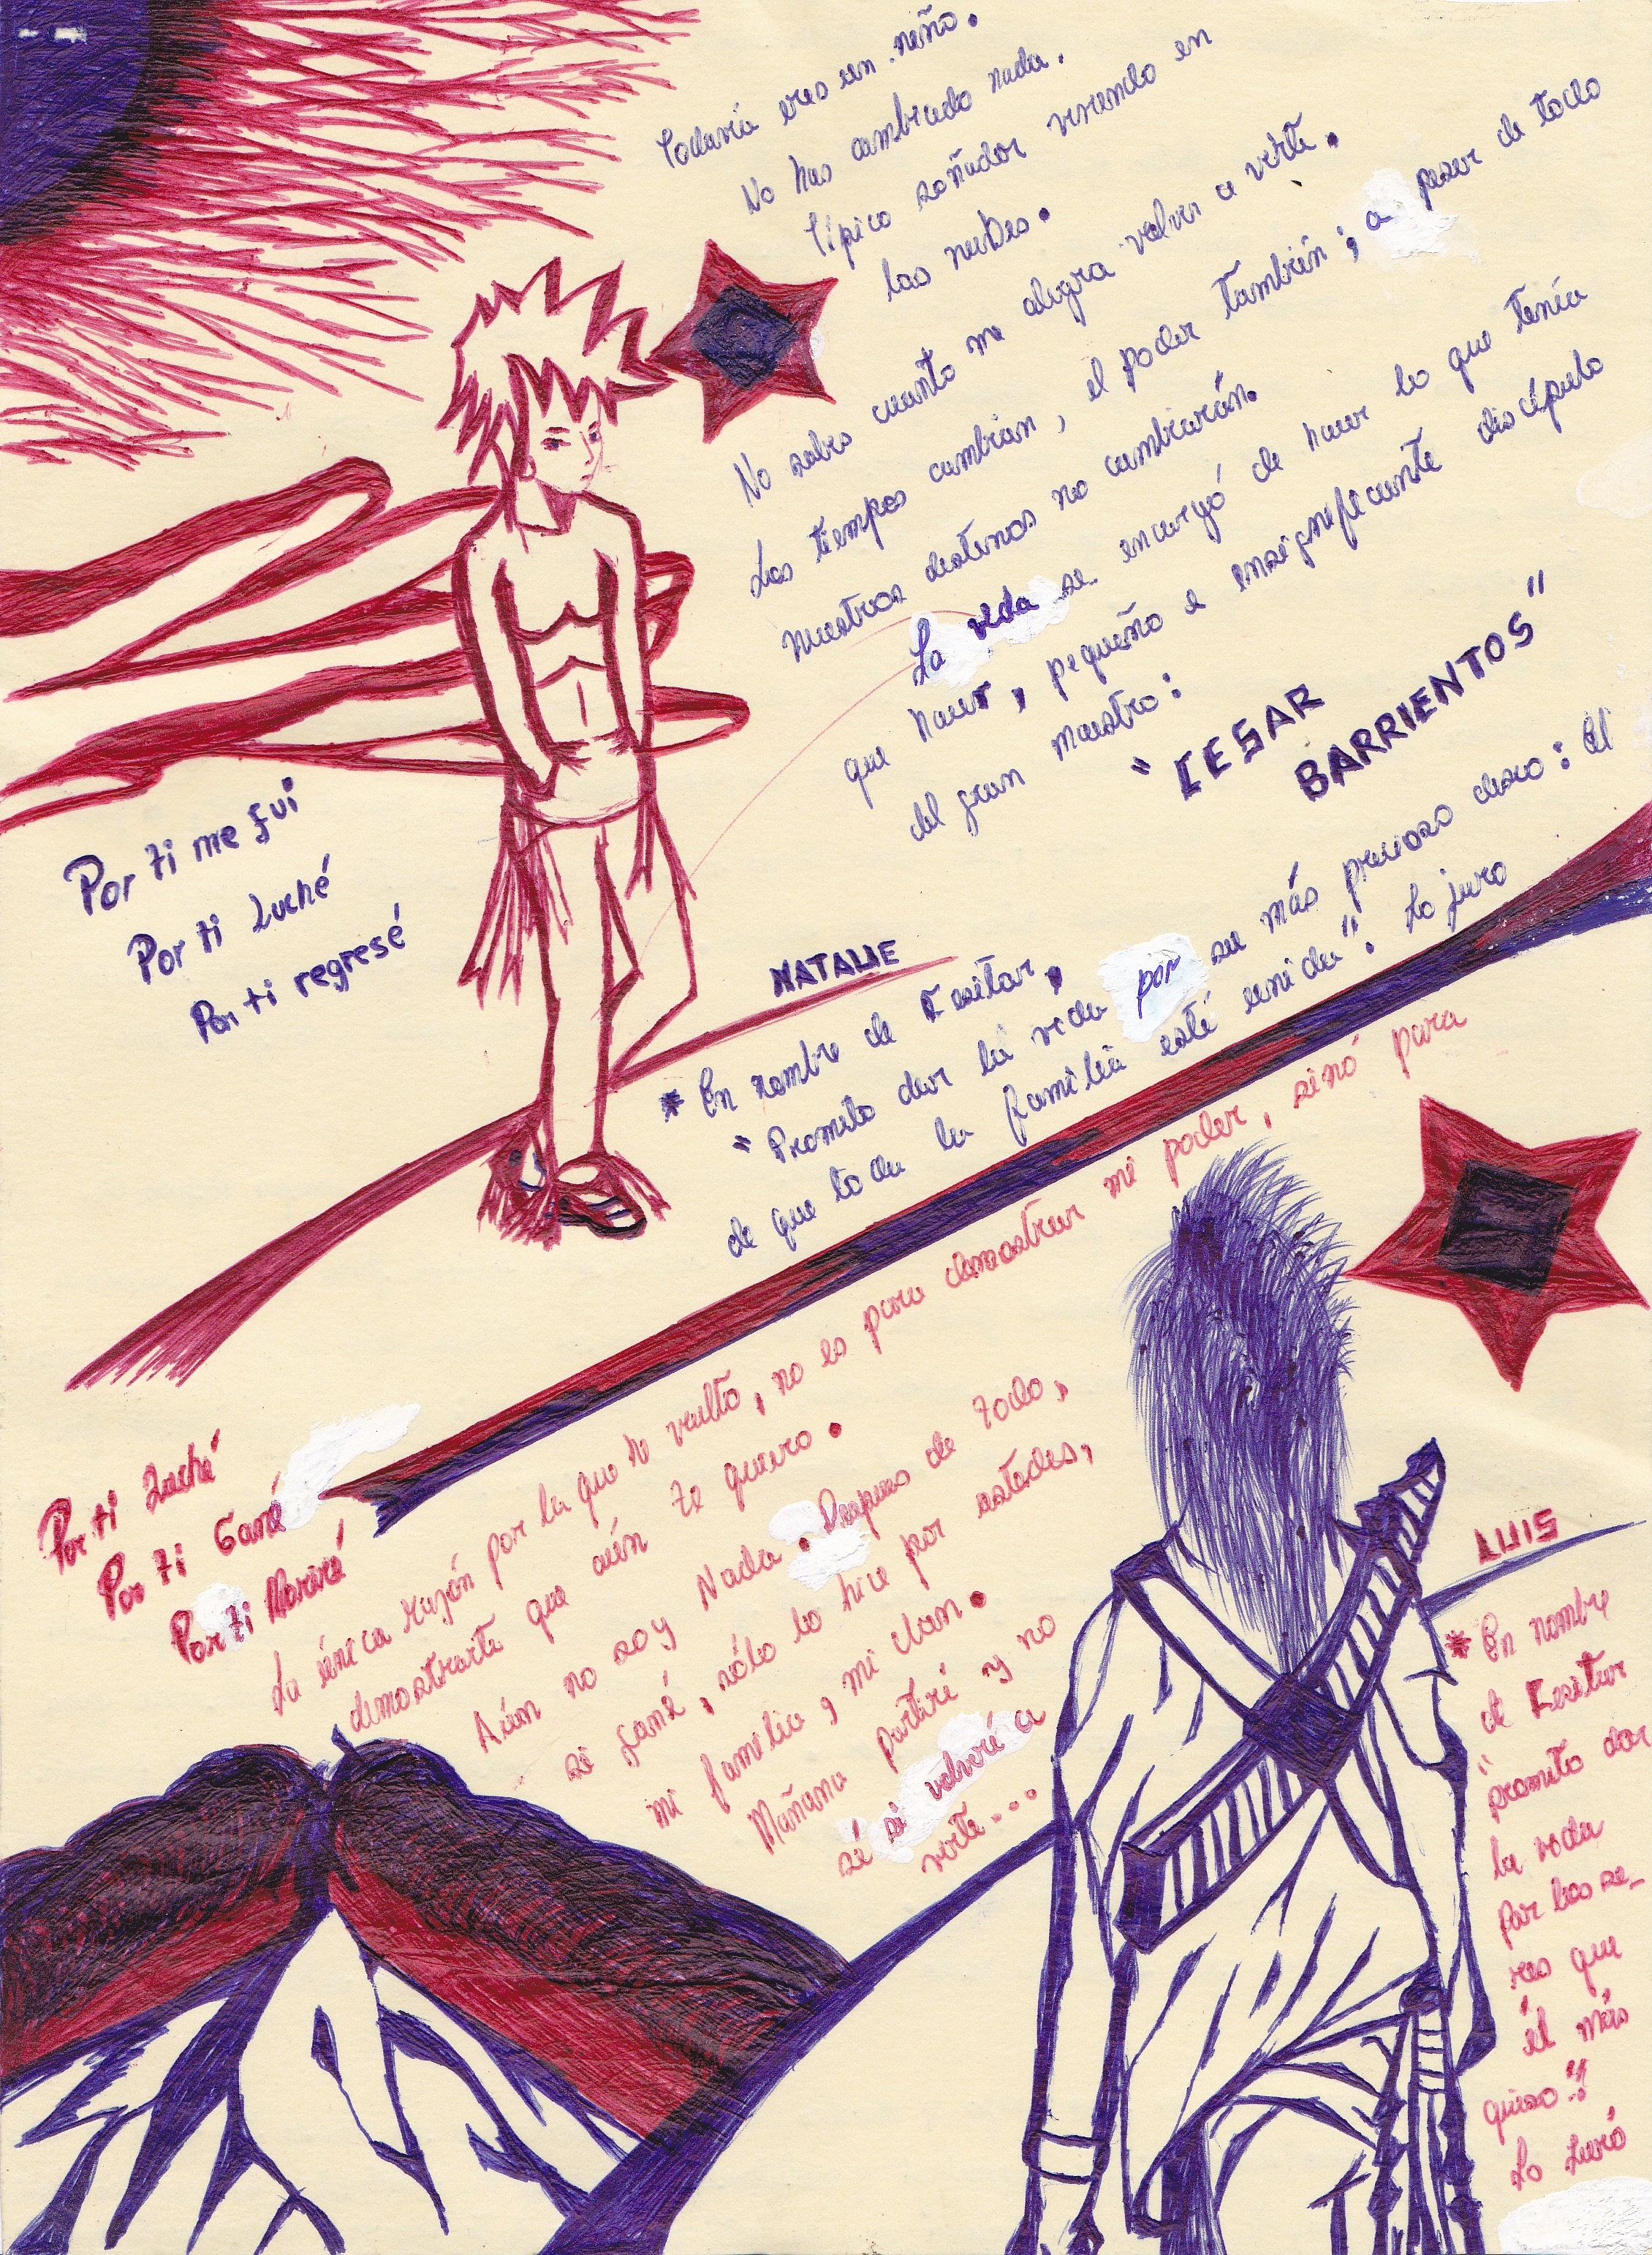 Todavía eres un niño.
No has cambiado nada.
Típico soñador viviendo en
las nubes.
No sabes cuanto me alegra volver a verte.
Los tiempos cambian, el poder también; a pesar de todo
nuestros destinos no cambiarán.
La vida se encargó de hacer lo que tenía
que hacer, pequeño e insignificante discípulo
del gran maestro:
"CESAR
BARRIENTOS"
Por ti me fui
Por ti Luché
Por ti regresé
NATALIE
* En nombre de Cesitar,
"Prometo dar la vida por su más precioso deseo: El
de que toda la familia esté unida". Lo juro
Por ti Luché
Por ti Gané
Por ti Moriré
La única razón por la que he vuelto, no es para demostrar mi poder, sinó para
demostrarte que aún te quiero.
Aún no soy Nada. Despues de todo,
si gané, sólo lo hice por ustedes,
mi familia, mi clan.
Mañana partiré y no
sé si volveré a
verte...
LUIS
* En nombre
de Cesitar
"prometo dar
la vida
por los se-
res que
él más
quiso".
Lo Juró